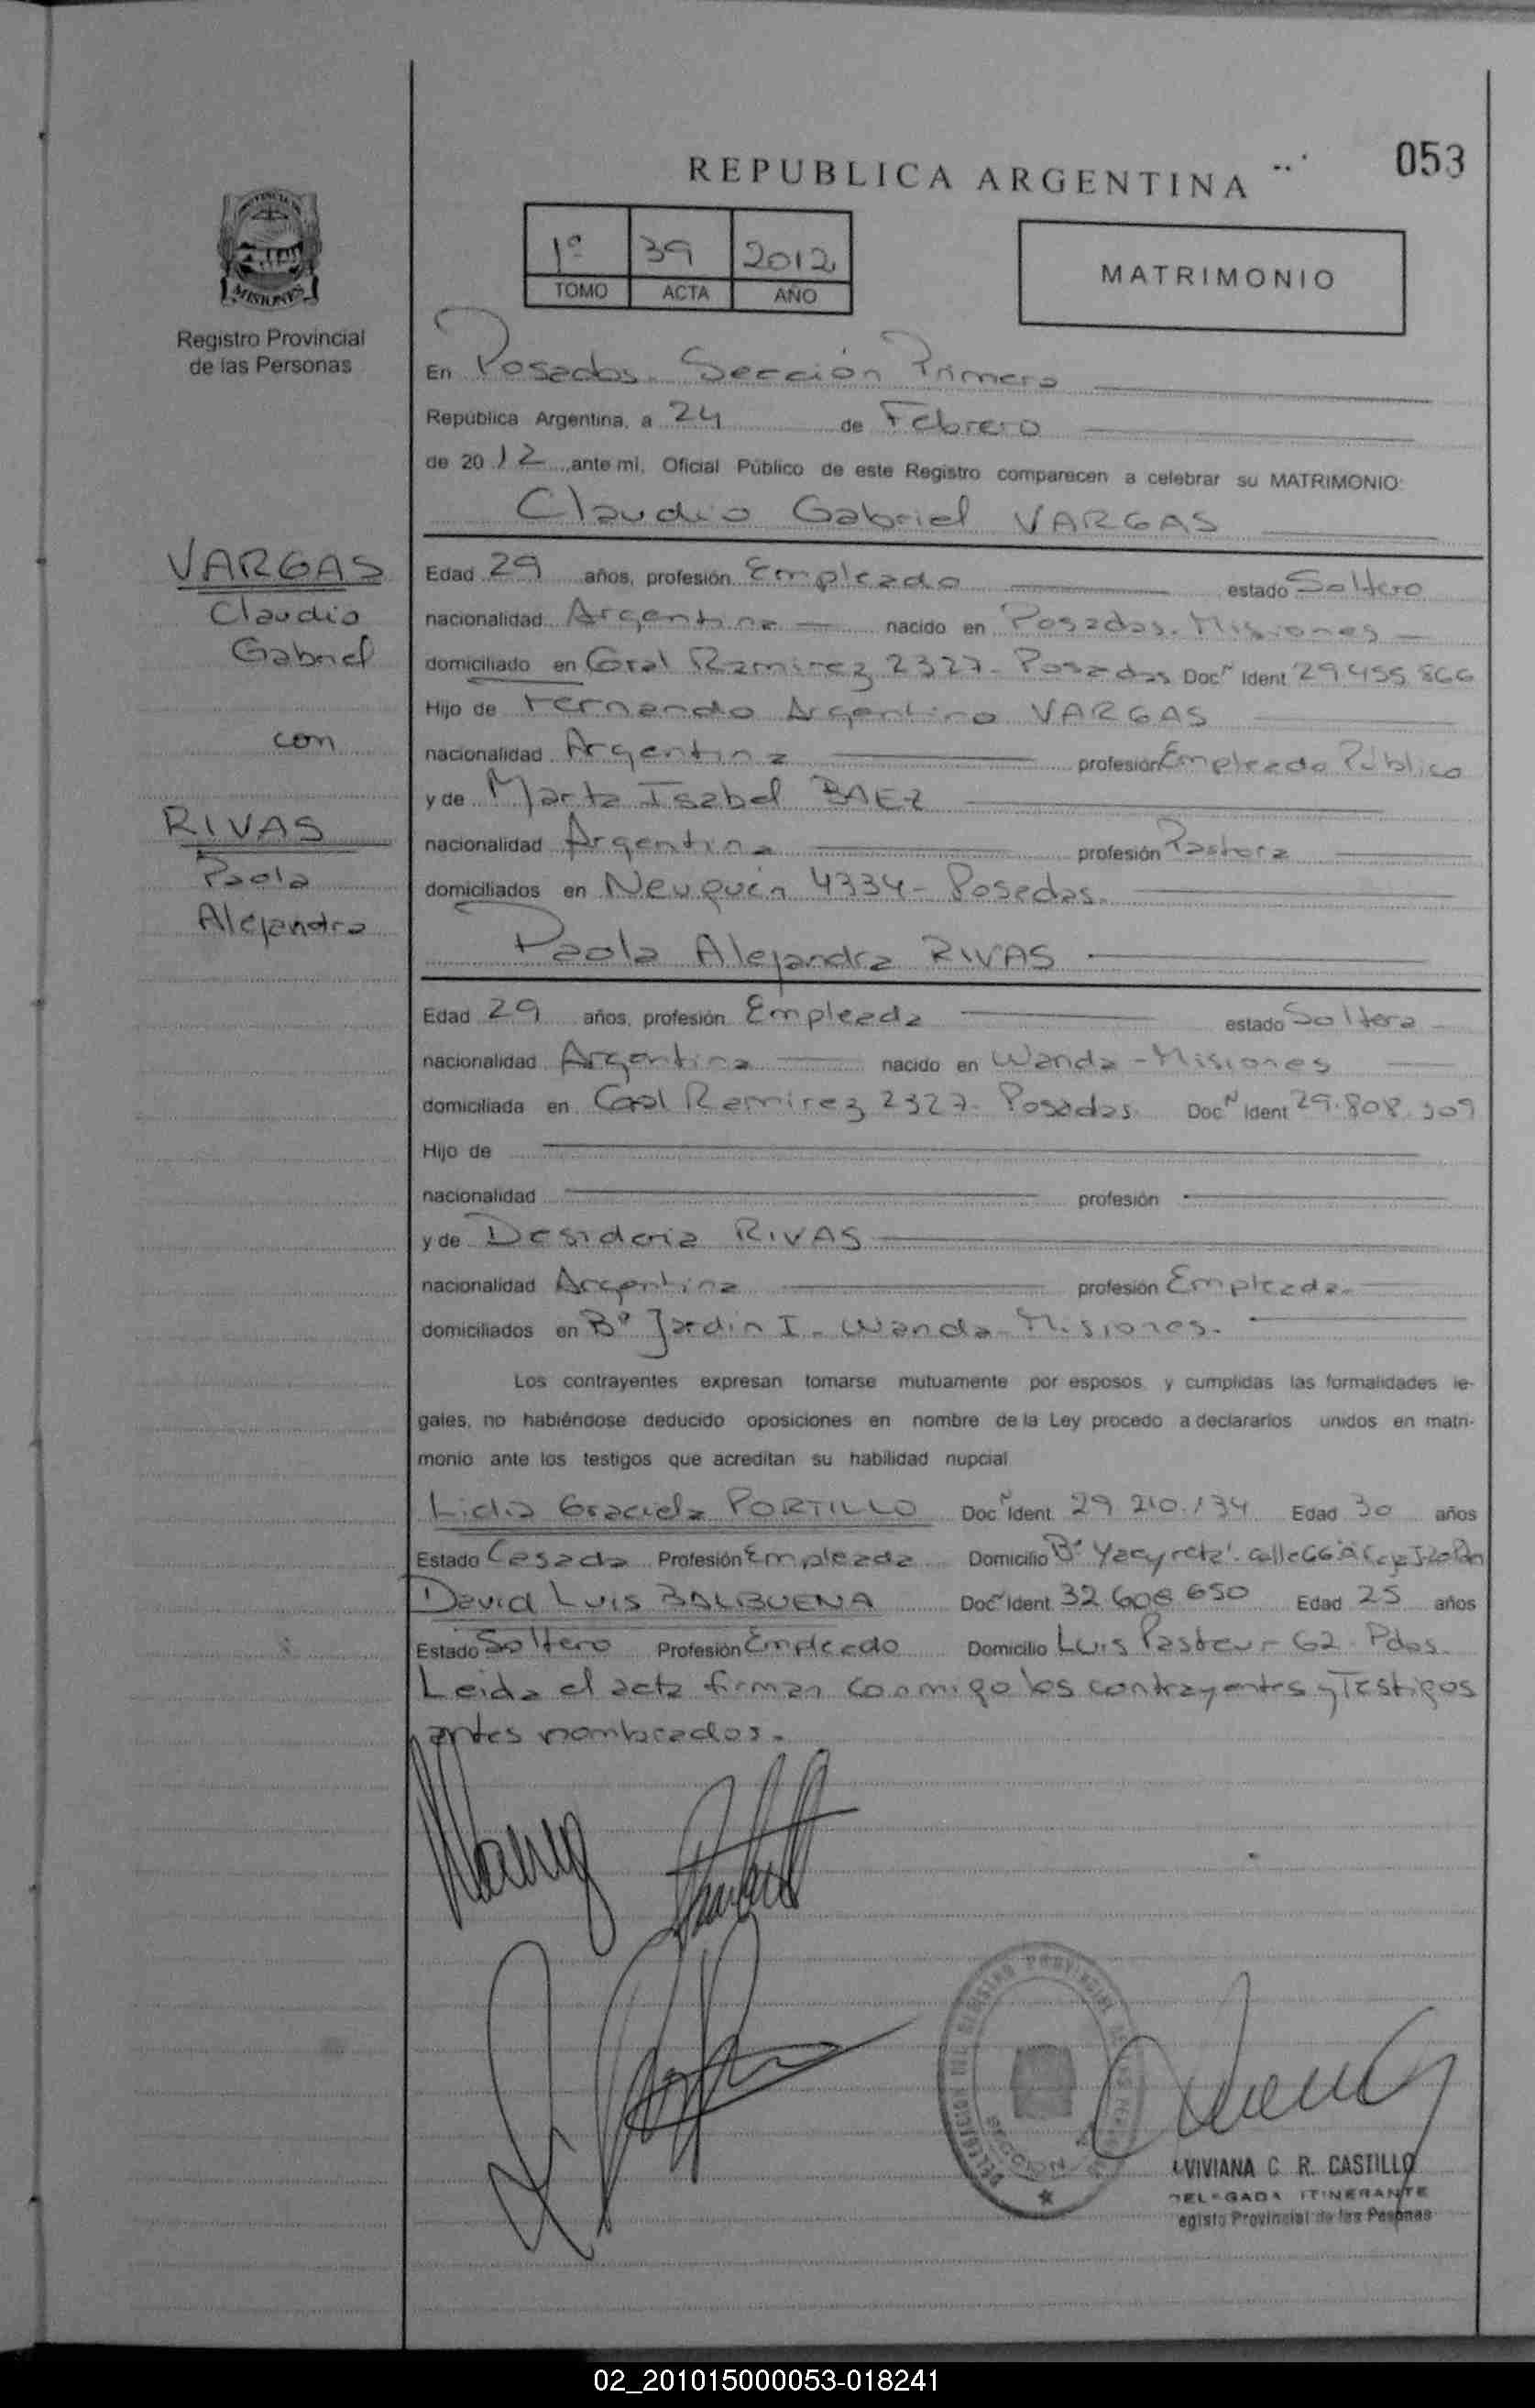 053
REPUBLICA ARGENTINA
1º 39 2012
TOMO ACTA AÑO
MATRIMONIO
MISIONES
Registro Provincial
de las Personas
En Posadas. Sección Primera
República Argentina, a 24 de Febrero
de 2012, ante mi, Oficial Público de este Registro comparecen a celebrar su MATRIMONIO:
Claudio Gabriel VARGAS
VARGAS
Claudio
Gabriel
con
RIVAS
Paola
Alejandra
Edad 29 años, profesión Empleado estado Soltero
nacionalidad Argentina nacido en Posadas. Misiones
domiciliado en Gral Ramirez 2327- Posadas Docⁿ Ident 29.455.866
Hijo de Fernando Argentino VARGAS
nacionalidad Argentina profesión Empleado Público
y de Marta Isabel BAEZ
nacionalidad Argentina profesión Pastora
domiciliados en Neuquén 4334- Posadas.
Paola Alejandra RIVAS
Edad 29 años, profesión Empleada estado Soltera
nacionalidad Argentina nacido en Wanda - Misiones
domiciliada en Gral Ramirez 2327- Posadas Docᴺ Ident 29.808.309
Hijo de
nacionalidad profesión
y de Desideria RIVAS
nacionalidad Argentina profesión Empleada
domiciliados en Bº Jardin I - Wanda - Misiones.
Los contrayentes expresan tomarse mutuamente por esposos, y cumplidas las formalidades le-
gales, no habiéndose deducido oposiciones en nombre de la Ley procedo a declararlos unidos en matri-
monio ante los testigos que acreditan su habilidad nupcial
Lidia Graciela PORTILLO Docᴺ Ident. 29.210.134 Edad 30 años
Estado Casada Profesión Empleada Domicilio Bº Yacyreta'. calle 66 A
David Luis BALBUENA Doc Ident. 32.608.650 Edad 25 años
Estado Soltero Profesión Empleado Domicilio Luis Pasteur 62. Pdas.
Leida el acta firman conmigo los contrayentes y Testigos
antes nombrados.
DELEGACION DEL REGISTRO PROVINCIAL DE LAS PERSONAS
SECCION
VIVIANA C R. CASTILLO
DELEGADA ITINERANTE
egisto Provincial de las Pesonas
02_201015000053-018241